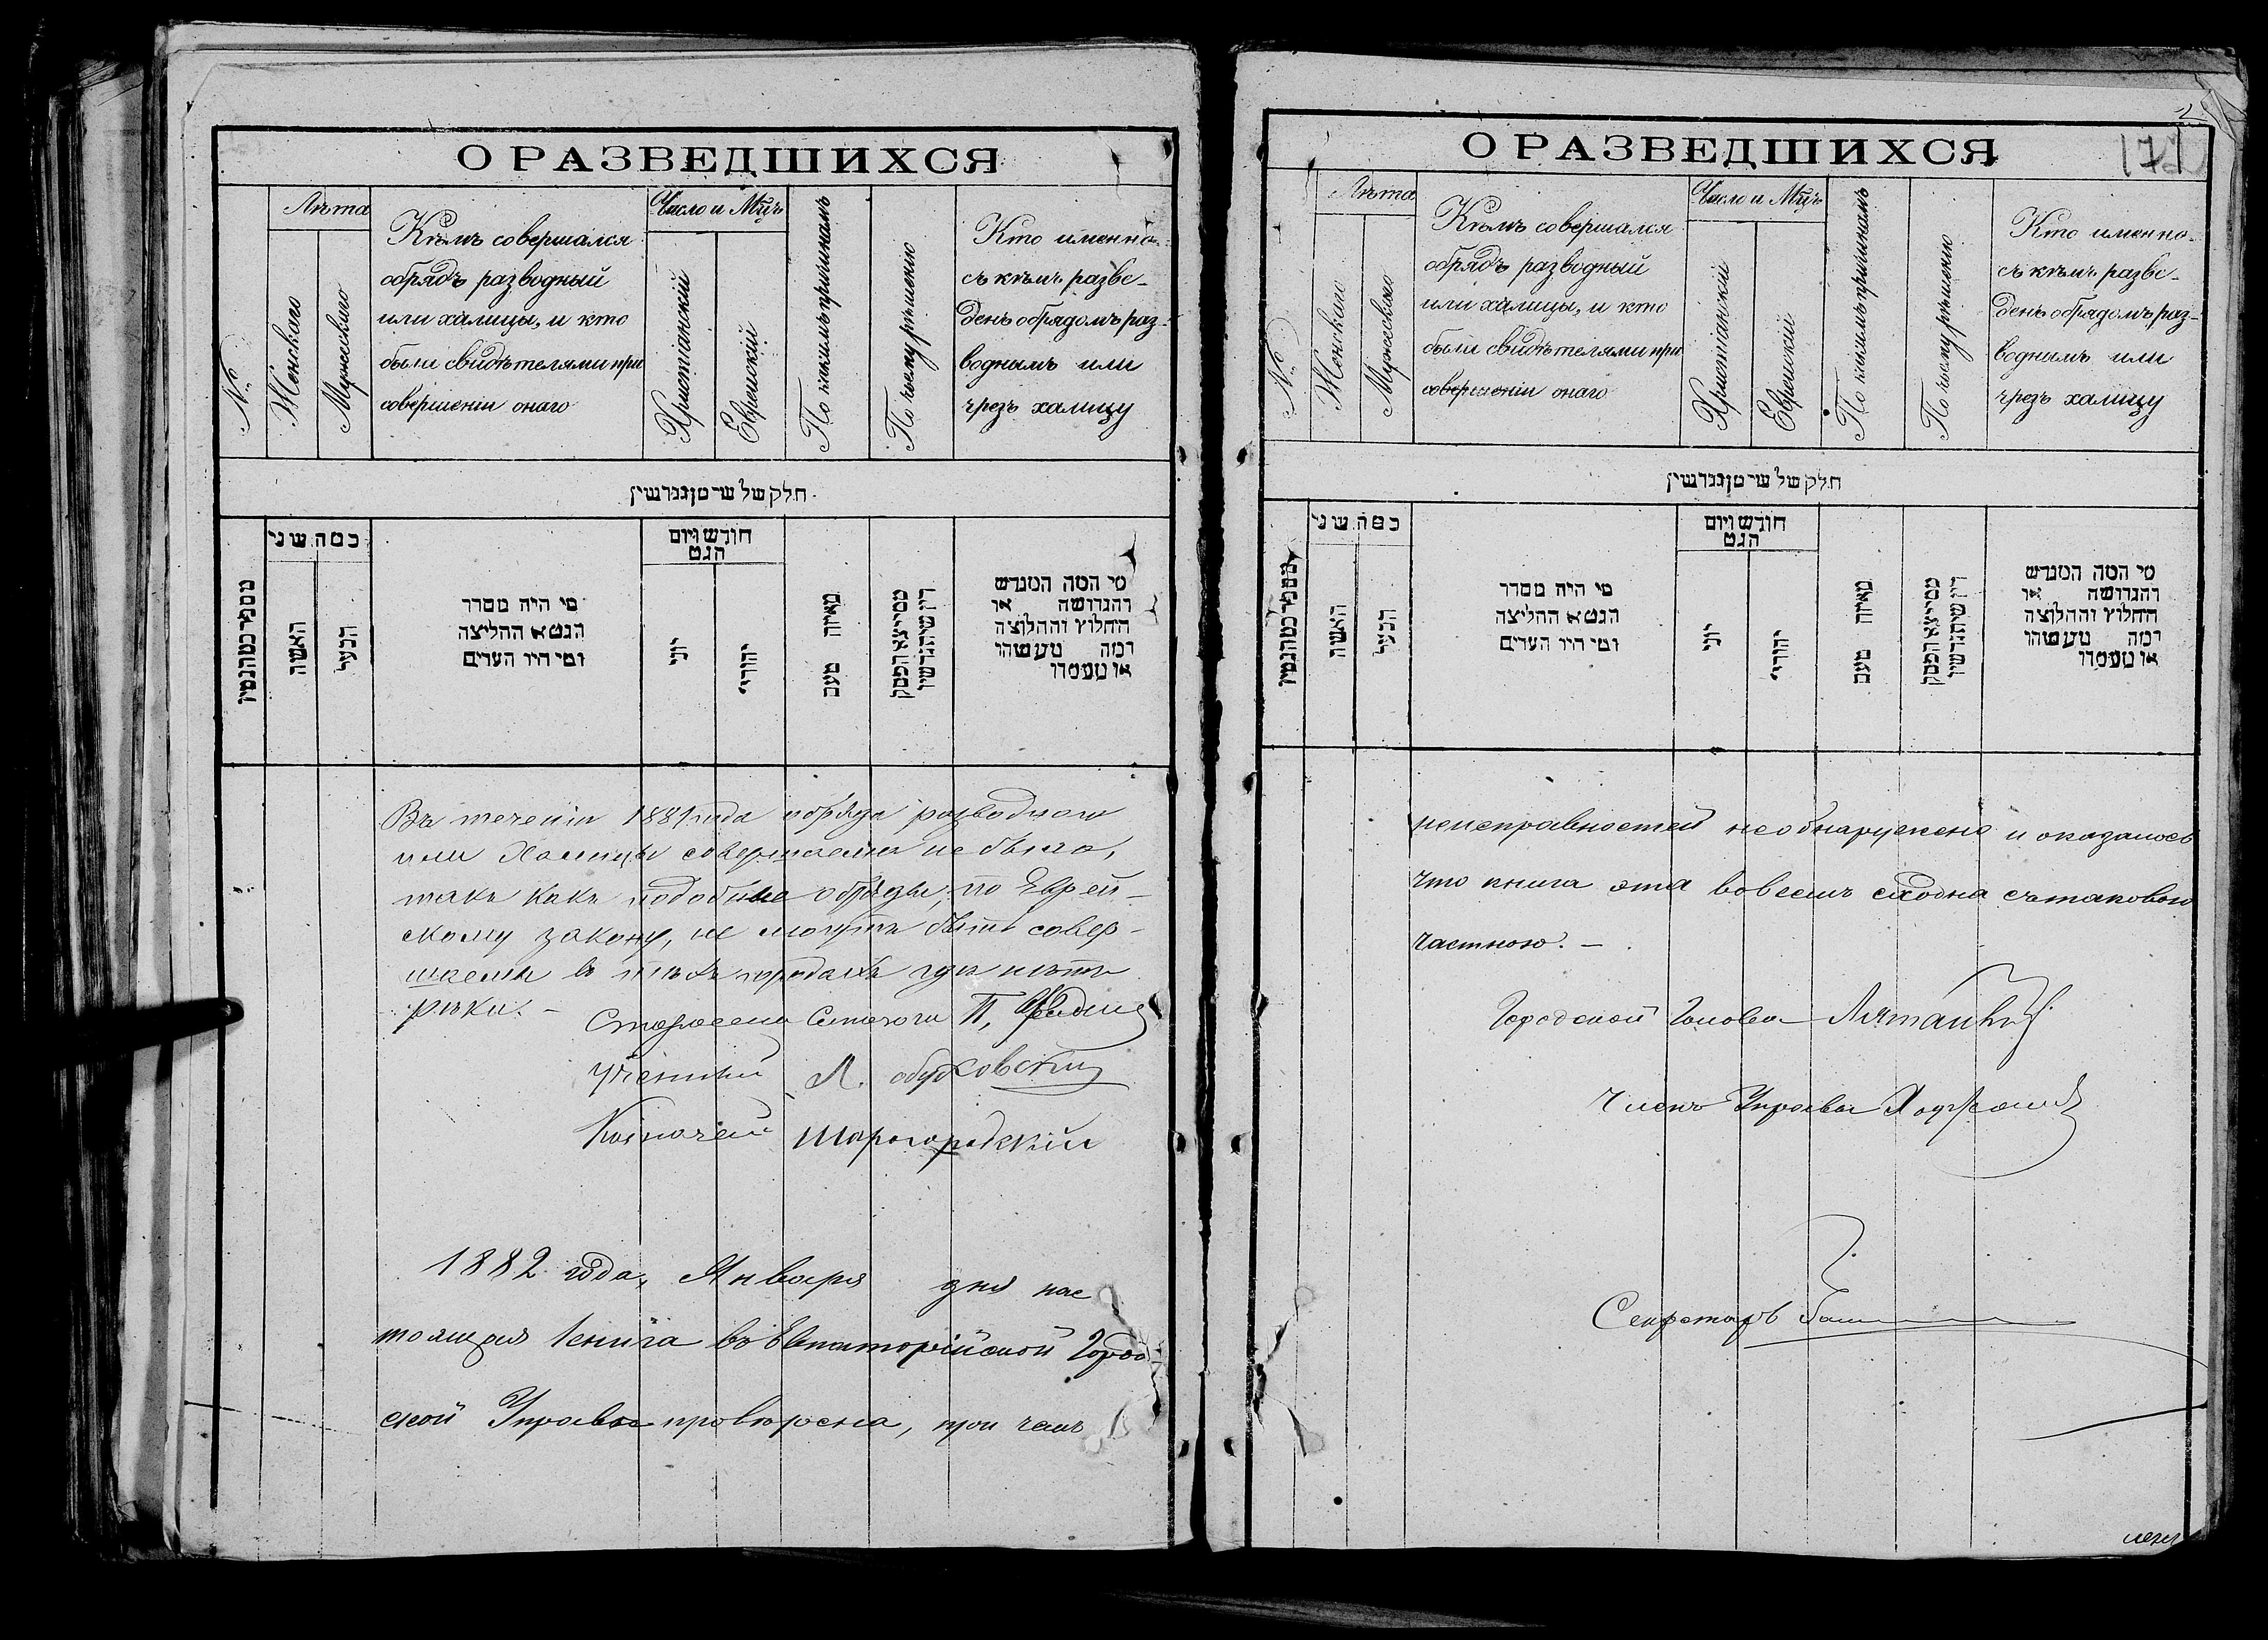 О РАЗВЕДШИХСЯ
№
Лѣта
Женскаго
Мужескаго
Кѣмъ совершался
обрядъ разводный
или халицы, и кто
были свидѣтелями при
совершеніи онаго
Число и Мцъ
Христіанскій
Еврейскій
По какимъ причинамъ
По чьему рѣшенію
Кто именно
съ кѣмъ разве-
денъ обрядомъ раз-
воднымъ или
чрезъ халицу
חלק של שטן גרושין
כמה שני
האשה
הבעל
מי היה מסדר
הגט או החליצה
ומי היו העדים
חודש ויום
הגט
יוני
יהודי
מאיזה טעם
מי המה המגרש
והגרושה או
החלוץ והחלוצה
ומה מעשהו
או מעמדו
Въ теченіи 1881 года обряда разводнаго
или Халицы совершаемо не было,
такъ какъ подобные обряды, по Еврей-
скому закону, не могутъ быть совер-
шаемы въ тѣхъ городахъ гдѣ нѣтъ
рѣки. –
Староста Синагоги П.
Ученый Л.
Казначей Шарогородскій
1882 года, Января дня нас
тоящая книга въ Евпаторійской Город
ской Управѣ провѣрена, при чемъ
О РАЗВЕДШИХСЯ
171
№
Лѣта
Женскаго
Мужескаго
Кѣмъ совершался
обрядъ разводный
или халицы, и кто
были свидѣтелями при
совершеніи онаго
Число и Мцъ
Христіанскій
Еврейскій
По какимъ причинамъ
По чьему рѣшенію
Кто именно
съ кѣмъ разве-
денъ обрядомъ раз-
воднымъ или
чрезъ халицу
חלק של שטן גרושין
כמה שני
האשה
הבעל
מי היה מסדר
הגט או החליצה
ומי היו העדים
חודש ויום
הגט
יוני
יהודי
מאיזה טעם
מי המה המגרש
והגרושה או
החלוץ והחלוצה
ומה מעשהו
או מעמדו
неисправностей необнаружено и оказалось
что книга эта вовсемъ сходна съ таковою
частною. –
Городской Голова
Членъ Управы
Секретарь